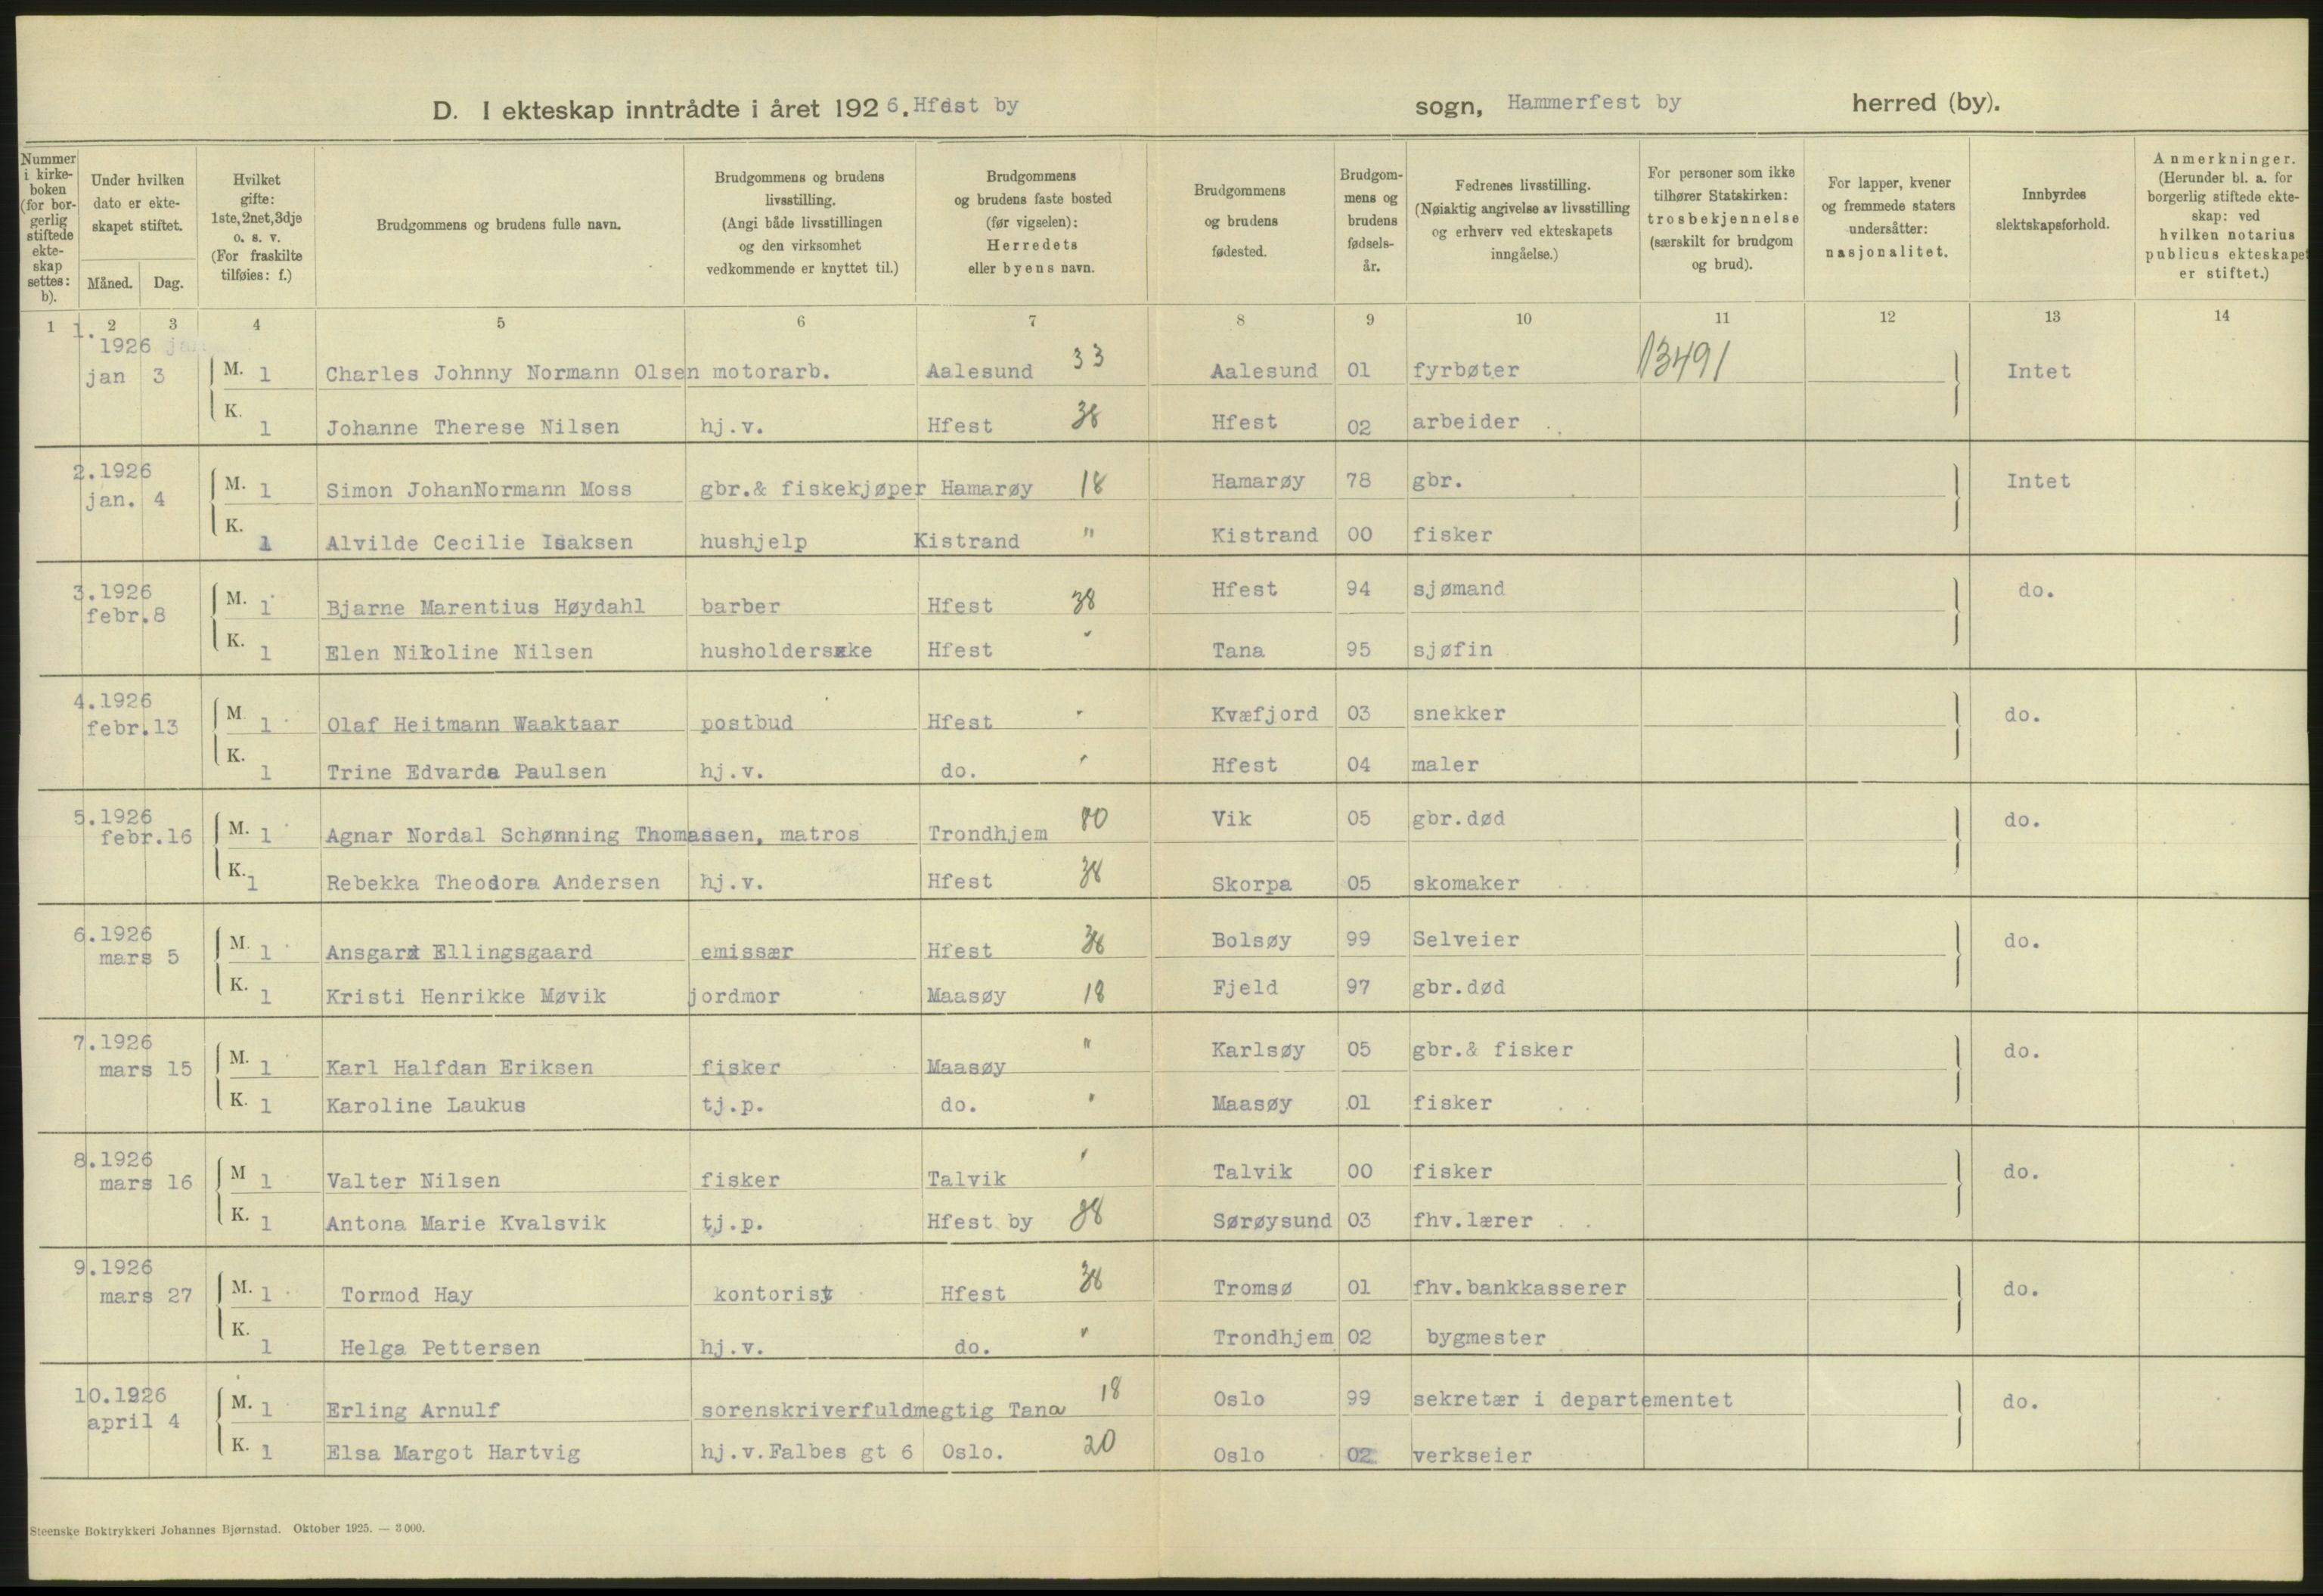 D. I ekteskap inntrådte i året 1926. Hfest by sogn, Hammerfest by herred (by).
Nummer i kirkeboken (for borgerlig stiftede ekteskap settes: b).
Under hvilken dato er ekteskapet stiftet.
Måned. Dag.
Hvilket gifte: 1ste, 2net, 3dje o. s. v. (For fraskilte tilføies: f.)
Brudgommens og brudens fulle navn.
Brudgommens og brudens livsstilling. (Angi både livsstillingen og den virksomhet vedkommende er knyttet til.)
Brudgommens og brudens faste bosted (før vigselen): Herredets eller byens navn.
Brudgommens og brudens fødested.
Brudgommens og brudens fødselsår.
Fedrenes livsstilling. (Nøiaktig angivelse av livsstilling og erhverv ved ekteskapets inngåelse.)
For personer som ikke tilhører Statskirken: trosbekjennelse (særskilt for brudgom og brud).
For lapper, kvener og fremmede staters undersåtter: nasjonalitet.
Innbyrdes slektskapsforhold.
Anmerkninger. (Herunder bl. a. for borgerlig stiftede ekteskap: ved hvilken notarius publicus ekteskapet er stiftet.)
1 2 3 4 5 6 7 8 9 10 11 12 13 14
1. 1926
jan 3 M. 1 Charles Johnny Normann Olsen motorarb. Aalesund 33 Aalesund 01 fyrbøter 13491 Intet
K. 1 Johanne Therese Nilsen hj.v. Hfest 38 Hfest 02 arbeider
2.1926
jan. 4 M. 1 Simon JohanNormann Moss gbr.& fiskekjøper Hamarøy 18 Hamarøy 78 gbr. Intet
K. 1 Alvilde Cecilie Isaksen hushjelp Kistrand " Kistrand 00 fisker
3.1926
febr.8 M. 1 Bjarne Marentius Høydahl barber Hfest 38 Hfest 94 sjømand do.
K. 1 Elen Nikoline Nilsen husholderske Hfest " Tana 95 sjøfin
4.1926
febr.13 M. 1 Olaf Heitmann Waaktaar postbud Hfest " Kvæfjord 03 snekker do.
K. 1 Trine Edvarda Paulsen hj.v. do. " Hfest 04 maler
5.1926
febr.16 M. 1 Agnar Nordal Schønning Thomassen, matros Trondhjem 80 Vik 05 gbr.død do.
K. 1 Rebekka Theodora Andersen hj.v. Hfest 38 Skorpa 05 skomaker
6.1926
mars 5 M. 1 Ansgard Ellingsgaard emissær Hfest 38 Bolsøy 99 Selveier do.
K. 1 Kristi Henrikke Møvik jordmor Maasøy 18 Fjeld 97 gbr.død
7.1926
mars 15 M. 1 Karl Halfdan Eriksen fisker Maasøy " Karlsøy 05 gbr.& fisker do.
K. 1 Karoline Laukus tj.p. do. " Maasøy 01 fisker
8.1926
mars 16 M 1 Valter Nilsen fisker Talvik " Talvik 00 fisker do.
K. 1 Antona Marie Kvalsvik tj.p. Hfest by 38 Sørøysund 03 fhv.lærer
9.1926
mars 27 M. 1 Tormod Hay kontorist Hfest 38 Tromsø 01 fhv.bankkasserer do.
K. 1 Helga Pettersen hj.v. do. " Trondhjem 02 bygmester
10.1926
april 4 M. 1 Erling Arnulf sorenskriverfuldmegtig Tana 18 Oslo 99 sekretær i departementet do.
K. 1 Elsa Margot Hartvig hj.v.Falbes gt 6 Oslo. 20 Oslo 02 verkseier
Steenske Boktrykkeri Johannes Bjørnstad. Oktober 1925. — 3 000.